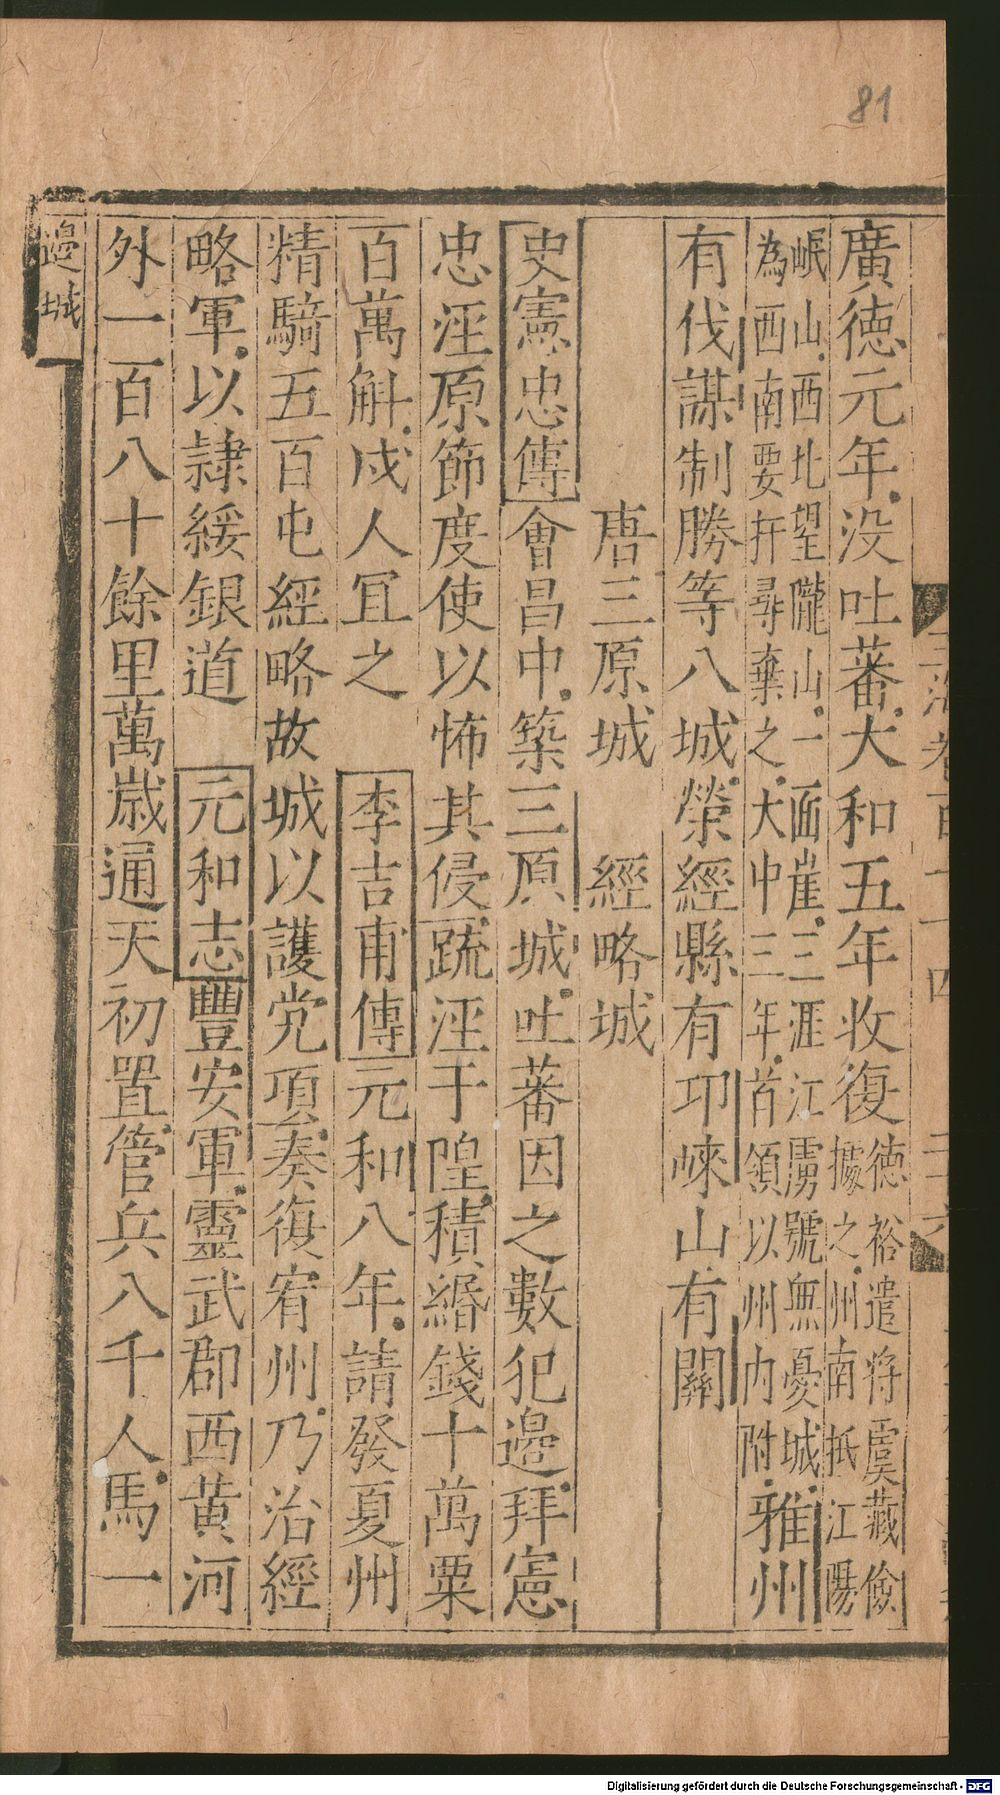 81
廣德元年没吐蕃大和五年收復德裕遣將虞藏儉
據之州南抵江陽
岷山西北望隴山一面崖三涯江虜號無憂城
為西南要扞尋棄之大中三年首領以州内附雅州
有伐謀制勝等八城榮經縣有邛崍山有關
唐三原城 經略城
史憲忠傳會昌中築三原城吐蕃因之數犯邊拜憲
忠涇原節度使以怖其侵踈涇于隍積緡錢十萬粟
百萬斛戍人冝之 李吉甫傳元和八年請發夏州
精騎五百屯經略故城以護党項奏復宥州乃治經
略軍以隷綏銀道 元和志豐安軍靈武郡西黄河
外一百八十餘里萬歲通天初置管兵八千人馬一
邊城
Digitalisierung gefördert durch die Deutsche Forschungsgemeinschaft - DFG